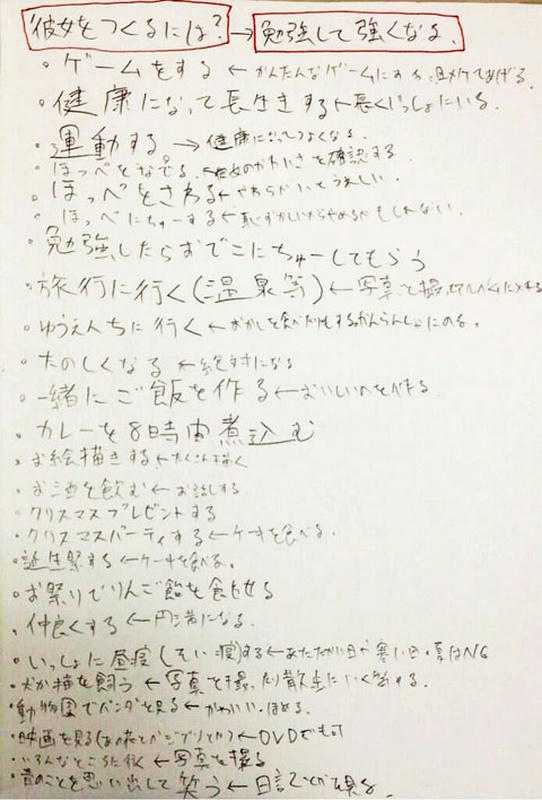 彼女をつくるには? → 勉強して強くなる。
・ゲームをする ← かんたんなゲームにする。
・健康になって長生きする ← 長くいっしょにいる。
・運動する → 健康になってつよくなる。
・ほっぺをなでる。 ← 彼女のかわいさを確認する
・ほっぺをさわる ← やわらかいとうれしい。
・ほっぺにちゅーする ← 恥ずかしいからやめるかもしれない。
・勉強したらおでこにちゅーしてもらう
・旅行に行く(温泉等) ← 写真を撮ってアルバムに
・ゆうえんちに行く ← おかしを食べたりもする。かんらんしゃにのる。
・たのしくなる ← 絶対になる
・一緒にご飯を作る ← おいしいのを作る
・カレーを8時間煮込む
・お絵描きする ← たくさん描く
・お酒を飲む ← お話しする
・クリスマスプレゼントする
・クリスマスパーティする ← ケーキを食べる。
・誕生祭する ← ケーキを食べる。
・お祭りでりんご飴を食べる
・仲良くする ← 円満になる。
・いっしょに昼寝(そい寝)する ← あたたかい日や寒い日・夏はNG
・犬か猫を飼う ← 写真を撮ったり散歩にいく等する。
・動物園でパンダを見る ← かわいい。ほめる。
・映画を見る ← DVDでも可
・いろんなところに行く ← 写真を撮る
・昔のことを思い出して笑う ← 日記とかを見る。